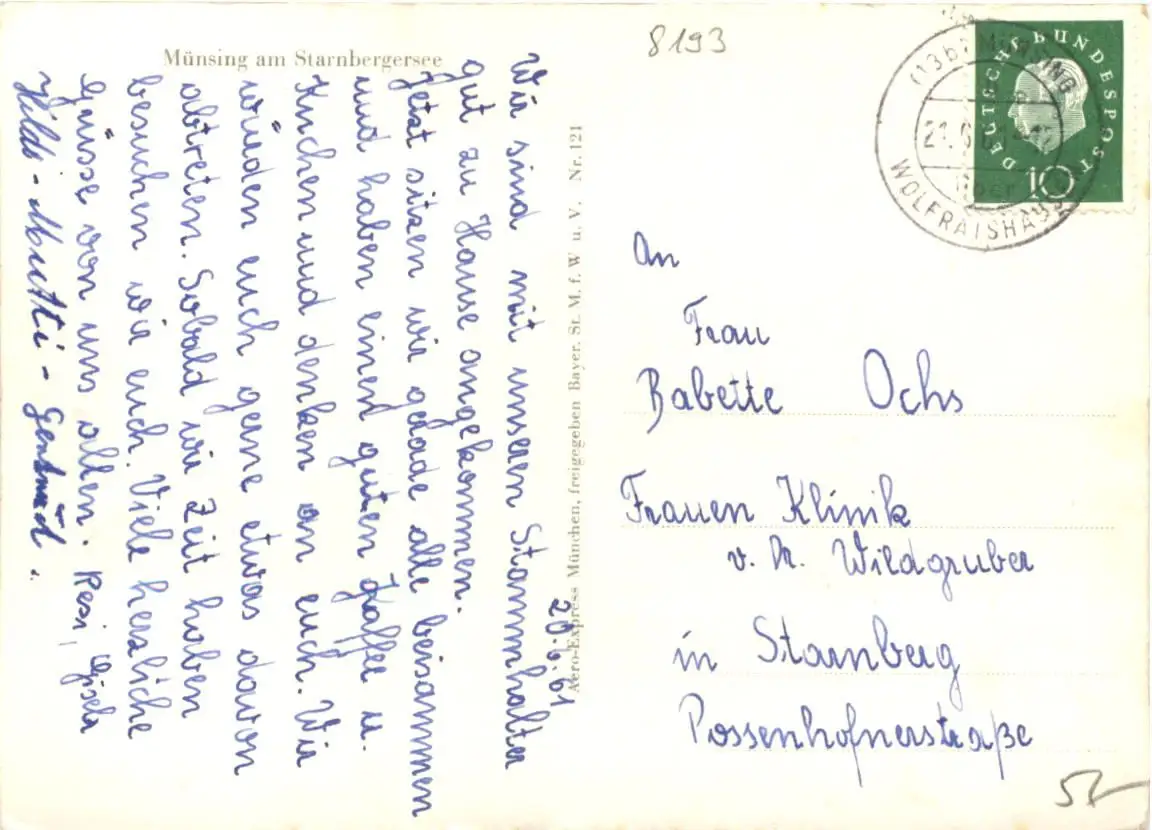 Münsing am Starnbergersee
8193
20.6.61
Wir sind mit unseren Stammhalter
gut zu Hause angekommen.
Jetzt sitzen wir gerade alle beisammen
und haben einen guten Kaffee u.
Kuchen und denken an euch. Wir
würden euch gerne etwas davon
abtreten. Sobald wir Zeit haben
besuchen wir euch. Viele herzliche
Grüsse von uns allen. Resi, Gisela
Hilde - Mutti - Gertrud.
Aero-Express München, freigegeben Bayer. St. M. f. W u. V. Nr. 121
DEUTSCHE BUNDESPOST
10
(13b) MÜNSING
21.6.
über
WOLFRATSHAUSEN
An
Frau
Babette Ochs
Frauen Klinik
v. Dr. Wildgruber
in Starnberg
Possenhofnerstraße